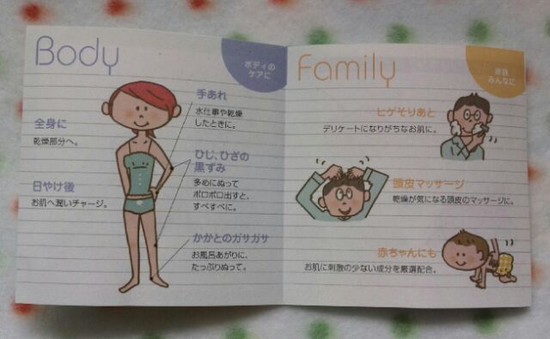 Body
ボディの
ケアに
全身に
乾燥部分へ。
日やけ後
お肌へ潤いチャージ。
手あれ
水仕事や乾燥
したときに。
ひじ、ひざの
黒ずみ
多めにぬって
ポロポロ出すと、
すべすべに。
かかとのガサガサ
お風呂あがりに、
たっぷりぬって。
Family
家族
みんなに
ヒゲそりあと
デリケートになりがちなお肌に。
頭皮マッサージ
乾燥が気になる頭皮のマッサージに。
赤ちゃんにも
お肌に刺激の少ない成分を厳選配合。